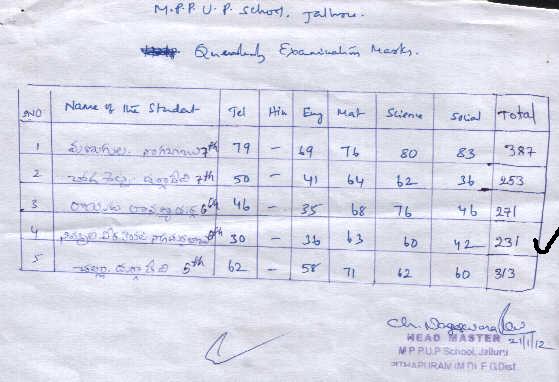 M.P.P.U.P. School, Jallore.
Quarterly Examination Marks.
SNO Name of the Student Tel Hin Eng Mat Science Social Total
1 7th 79 - 69 76 80 83 387
2 7th 50 - 41 64 62 36 253
3 6th 46 - 35 68 76 46 271
4 5th 30 - 36 63 60 42 231
5 5th 62 - 58 71 62 60 313
Ch. Nageswara Rao
21/1/12
HEAD MASTER
M P P.U.P School, Jalluru
PITHAPURAM (M D) E G.Dist